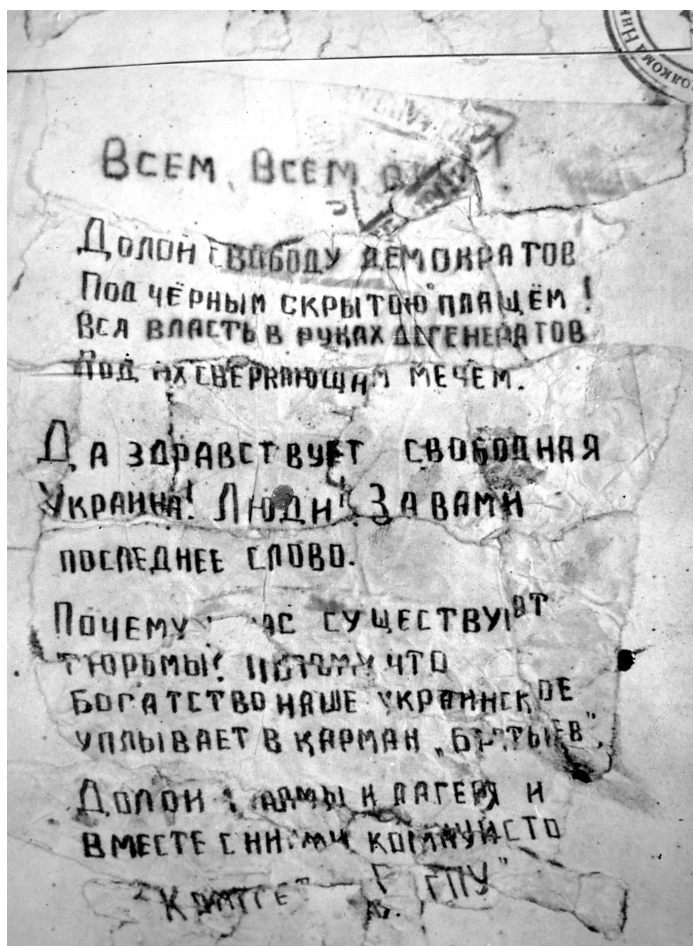 олкома Ни
Всем, Всем,
Долон свободу демократов
Под чёрным скрытою плащём!
Вся власть в руках дегенератов
Под их сверкающим мечем.
Да здравствует свободная
Украина! Люди! За вами
последнее слово.
Почему нас существуют
тюрьмы? Потому что
богатство наше украинское
уплывает в карман „Братьев".
Долон и лагеря и
вместе с ними
ГПУ"